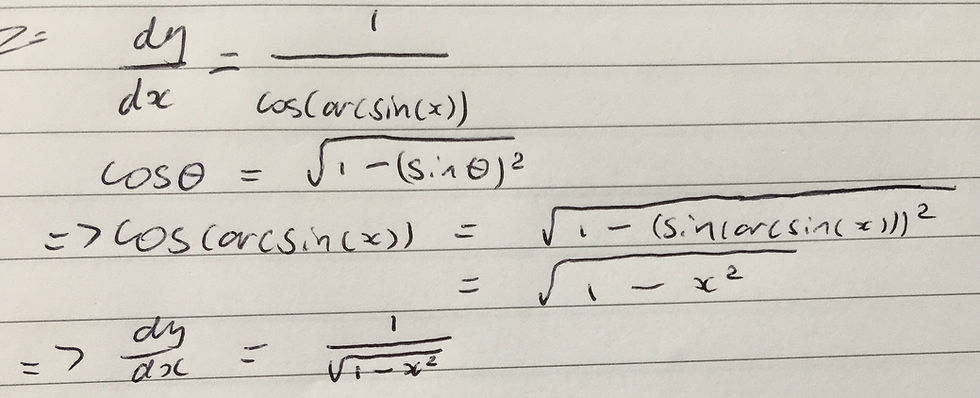 => dy/dx = 1/cos(arcsin(x))
cosθ = √(1-(sinθ)²)
=> cos(arcsin(x)) = √(1-(sin(arcsin(x)))²)
= √(1-x²)
=> dy/dx = 1/√(1-x²)